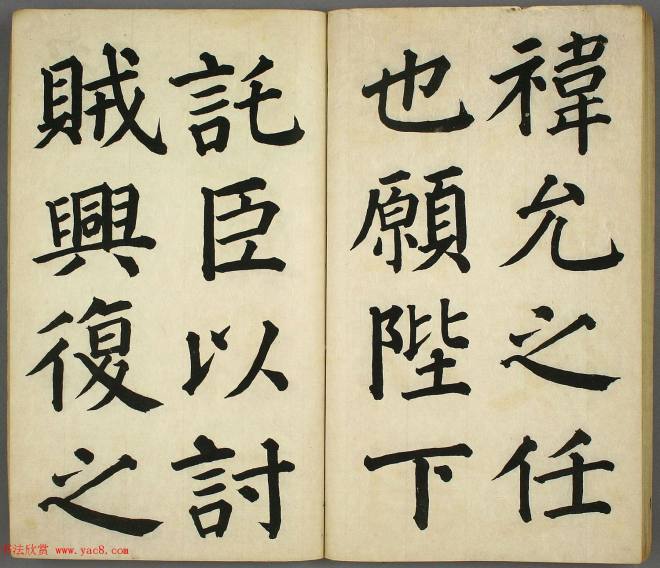 禕允之任
也願陛下
託臣以討
賊興復之
书法欣赏 www.yac8.com